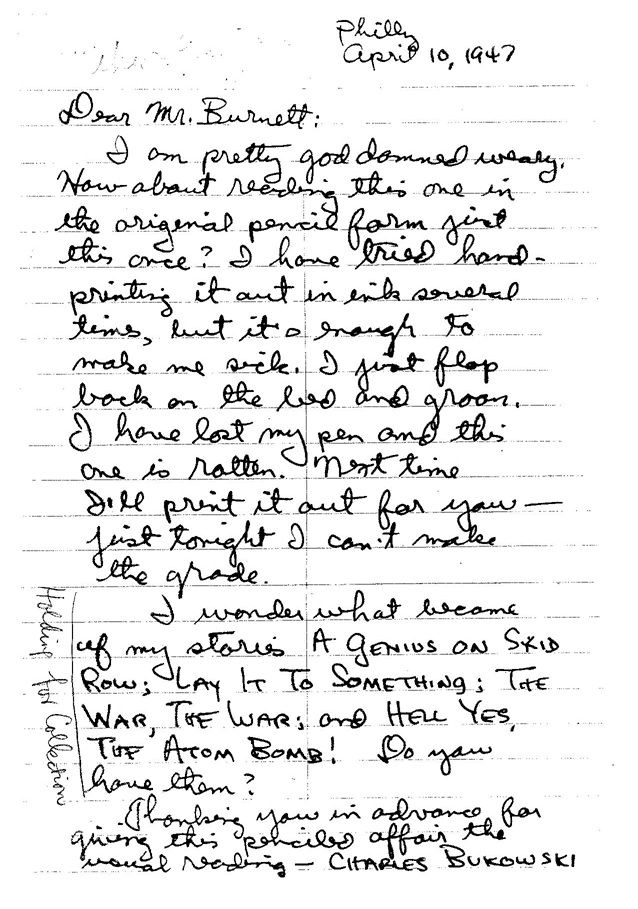 Philly
April 10, 1947
Dear Mr. Burnett:
I am pretty god damned weary.
How about reading this one in
the origenal pencil form just
this once? I have tried hand-
printing it out in ink several
times, but it's enough to
make me sick. I just flop
back on the bed and groan.
I have lost my pen and this
one is rotten. Next time
I'll print it out for you —
just tonight I can't make
the grade.
I wonder what became
of my stories A GENIUS ON SKID
ROW; LAY IT TO SOMETHING; THE
WAR, THE WAR; and HELL YES,
THE ATOM BOMB! Do you
have them?
Thanking you in advance for
giving this penciled affair the
usual reading — CHARLES BUKOWSKI
Holding for Collection